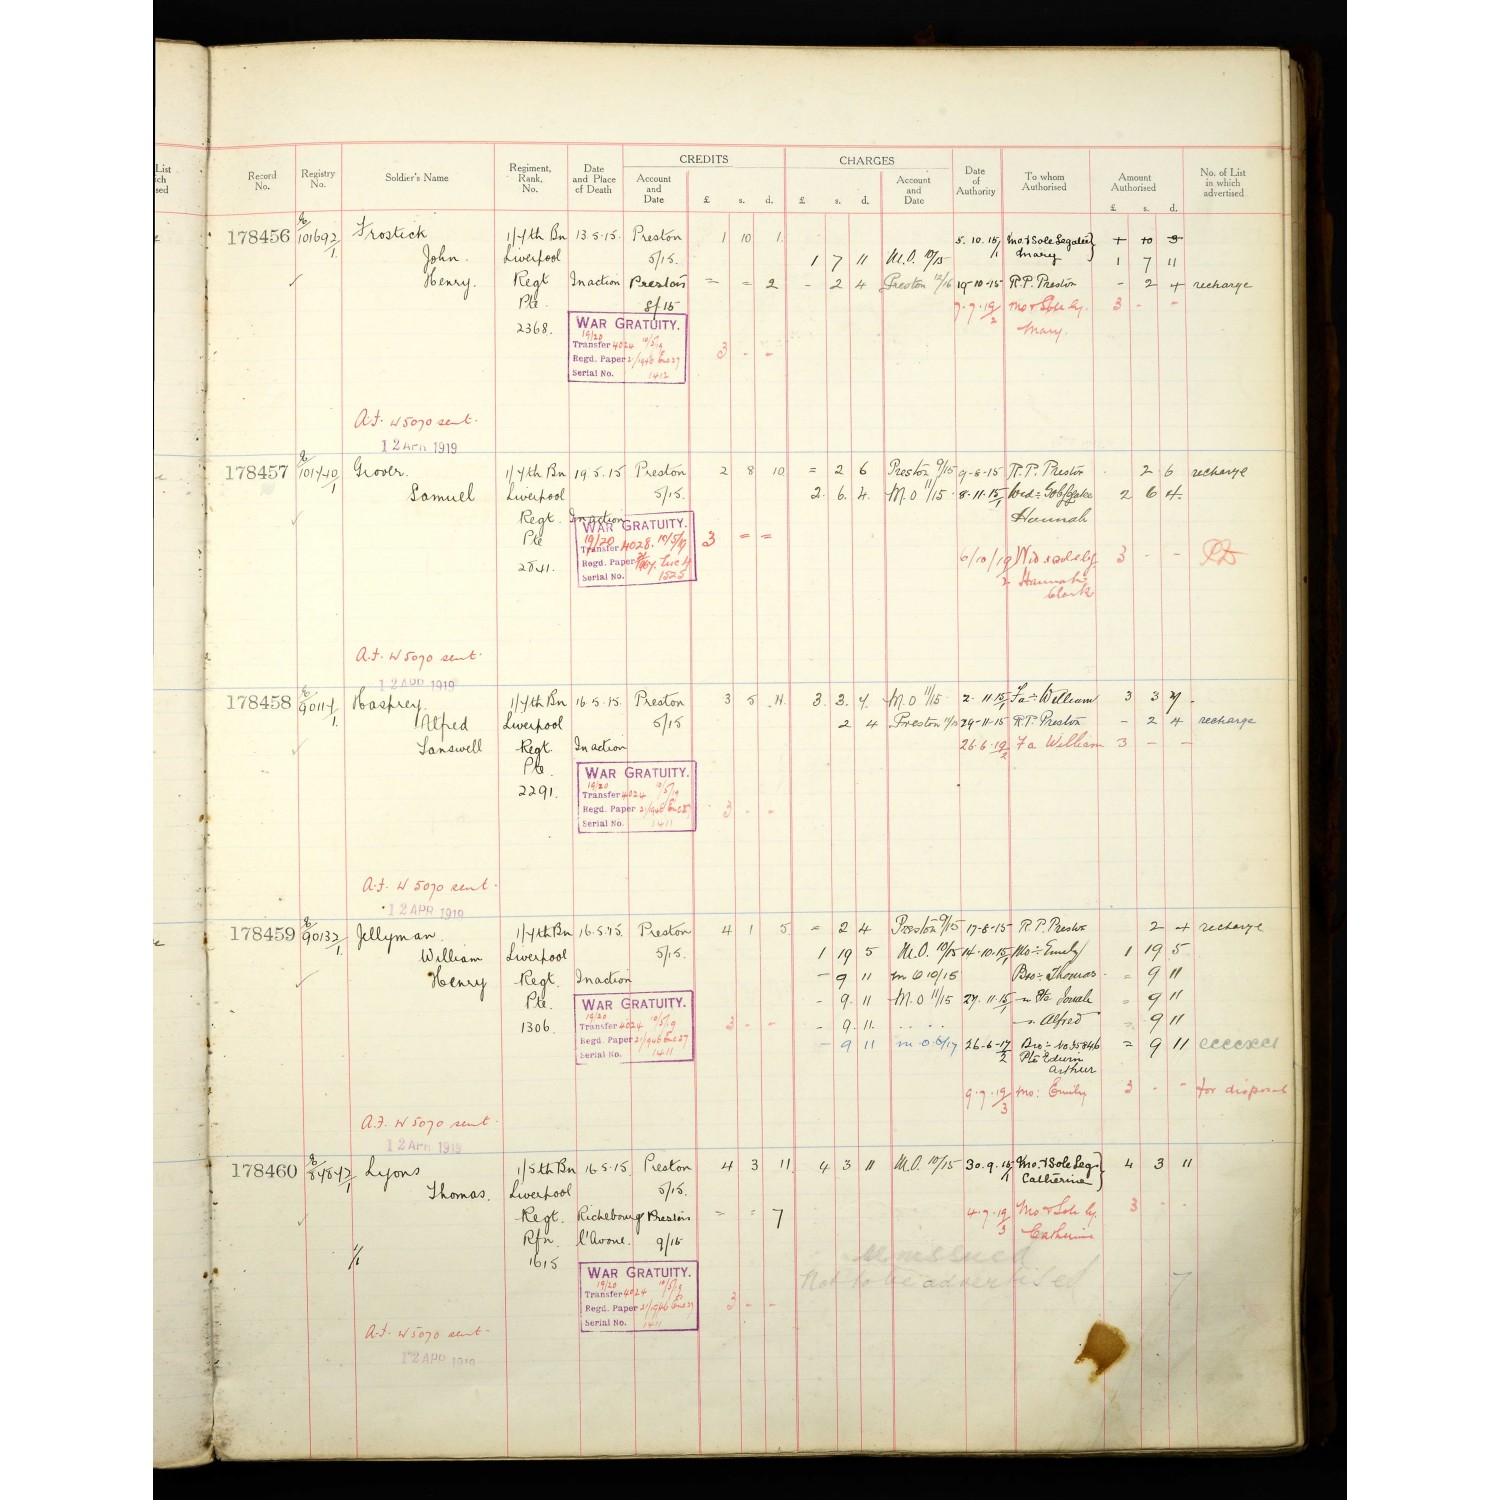 List
CREDITS CHARGES
Record No. Registry No. Soldier's Name Regiment, Rank, No. Date and Place of Death Account and Date £ s. d. £ s. d. Account and Date Date of Authority To whom Authorised Amount Authorised £ s. d. No. of List in which advertised
178456 E/101692/1 Frostick 1/7th Bn 13.5.15. Preston 1 10 1 5.10.15/1 Mo. & Sole Legatee
John Liverpool 5/15. 1 7 11 M.O. 10/15 Mary 1 7 11
Henry. Regt In action Preston = = 2 - 2 4 Preston 12/16 19-10-15 R.P. Preston - 2 4 recharge
Pte. 8/15 7.7.19/2 Mo & Sole Leg. 3 - -
2368. WAR GRATUITY. Mary.
19/20
Transfer 4024 10/5/19 3 - -
Regd. Paper 21/1946 Enc 27
Serial No. 1412
A.F. W5070 sent.
12 APR 1919
178457 E/101740/1 Grover. 1/7th Bn 19.5.15 Preston 2 8 10 = 2 6 Preston 9/15 9-8-15 R.P. Preston 2 6 recharge
Samuel Liverpool 5/15. 2. 6. 4. M.O 11/15 8.11.15/1 Wid: Sole Legatee 2 6 4.
Regt. In action Hannah
Pte WAR GRATUITY. 3 = =
2841. 19/20
Transfer 4028. 10/5/19 6/10/19/2 Wid & sole leg 3 - -
Regd. Paper Hannah
Serial No. 1525 Clark
A.F. W5070 sent.
12 APR 1919
178458 E/90117/1. Hasprey 1/7th Bn 16.5.15. Preston 3 5 11. 3. 3. 7. M.O 11/15 2.11.15/1 Fa: William 3 3 7.
Alfred Liverpool 5/15 2 4 Preston 29-11-15 R.P. Preston - 2 4 recharge
Sanswell Regt. In action 26.6.19/2 Fa William 3 - -
Pte.
2291. WAR GRATUITY.
19/20
Transfer 4024 10/5/19
Regd. Paper 21/1946 Enc 27 3 - -
Serial No. 1411
A.F. W5070 sent.
12 APR 1919
178459 E/90132/1. Jellyman. 1/7th Bn 16.5.15. Preston 4 1 5. = 2 4 Preston 9/15 17-8-15 R.P. Preston 2 4 recharge
William Liverpool 5/15. 1 19 5 M.O. 10/15 14.10.15/1 Mo: Emily 1 19 5
Henry Regt. In action - 9 11 M O 10/15 Bro: Thomas - = 9 11
Pte. WAR GRATUITY. - 9. 11 M.O 11/15 27.11.15/1 Pte Josiah = 9 11
1306. 19/20
Transfer 4024 10/5/19 3 - - - 9. 11. Alfred = 9 11
Regd. Paper 21/1946 Enc 27 - 9 11 M.O 6/17 26-6-17/2 Bro: No. 35846 = 9 11
Serial No. 1411 Pte Edwin
Arthur
9.7.19/3 Mo: Emily 3 - - for disposal
A.F. W5070 sent.
12 APR 1919
178460 E/84847/1 Lyons 1/5th Bn 16.5.15. Preston 4 3 11 4 3 11 M.O. 10/15 30.9.15/1 Mo. & Sole Leg: 4 3 11
Thomas. Liverpool 5/15. Catherine
Regt. Richebourg Preston = = 7 4.7.19/3 Mo & Sole Leg. 3 - -
Rfn. l'Avoue. 9/15 Catherine
1/1 1615 unissued
WAR GRATUITY. Not to be advertised 7
19/20
Transfer 4024 10/5/19
Regd. Paper 21/1946 Enc 27 3 - -
Serial No. 1411
A.F. W5070 sent.
12 APR 1919